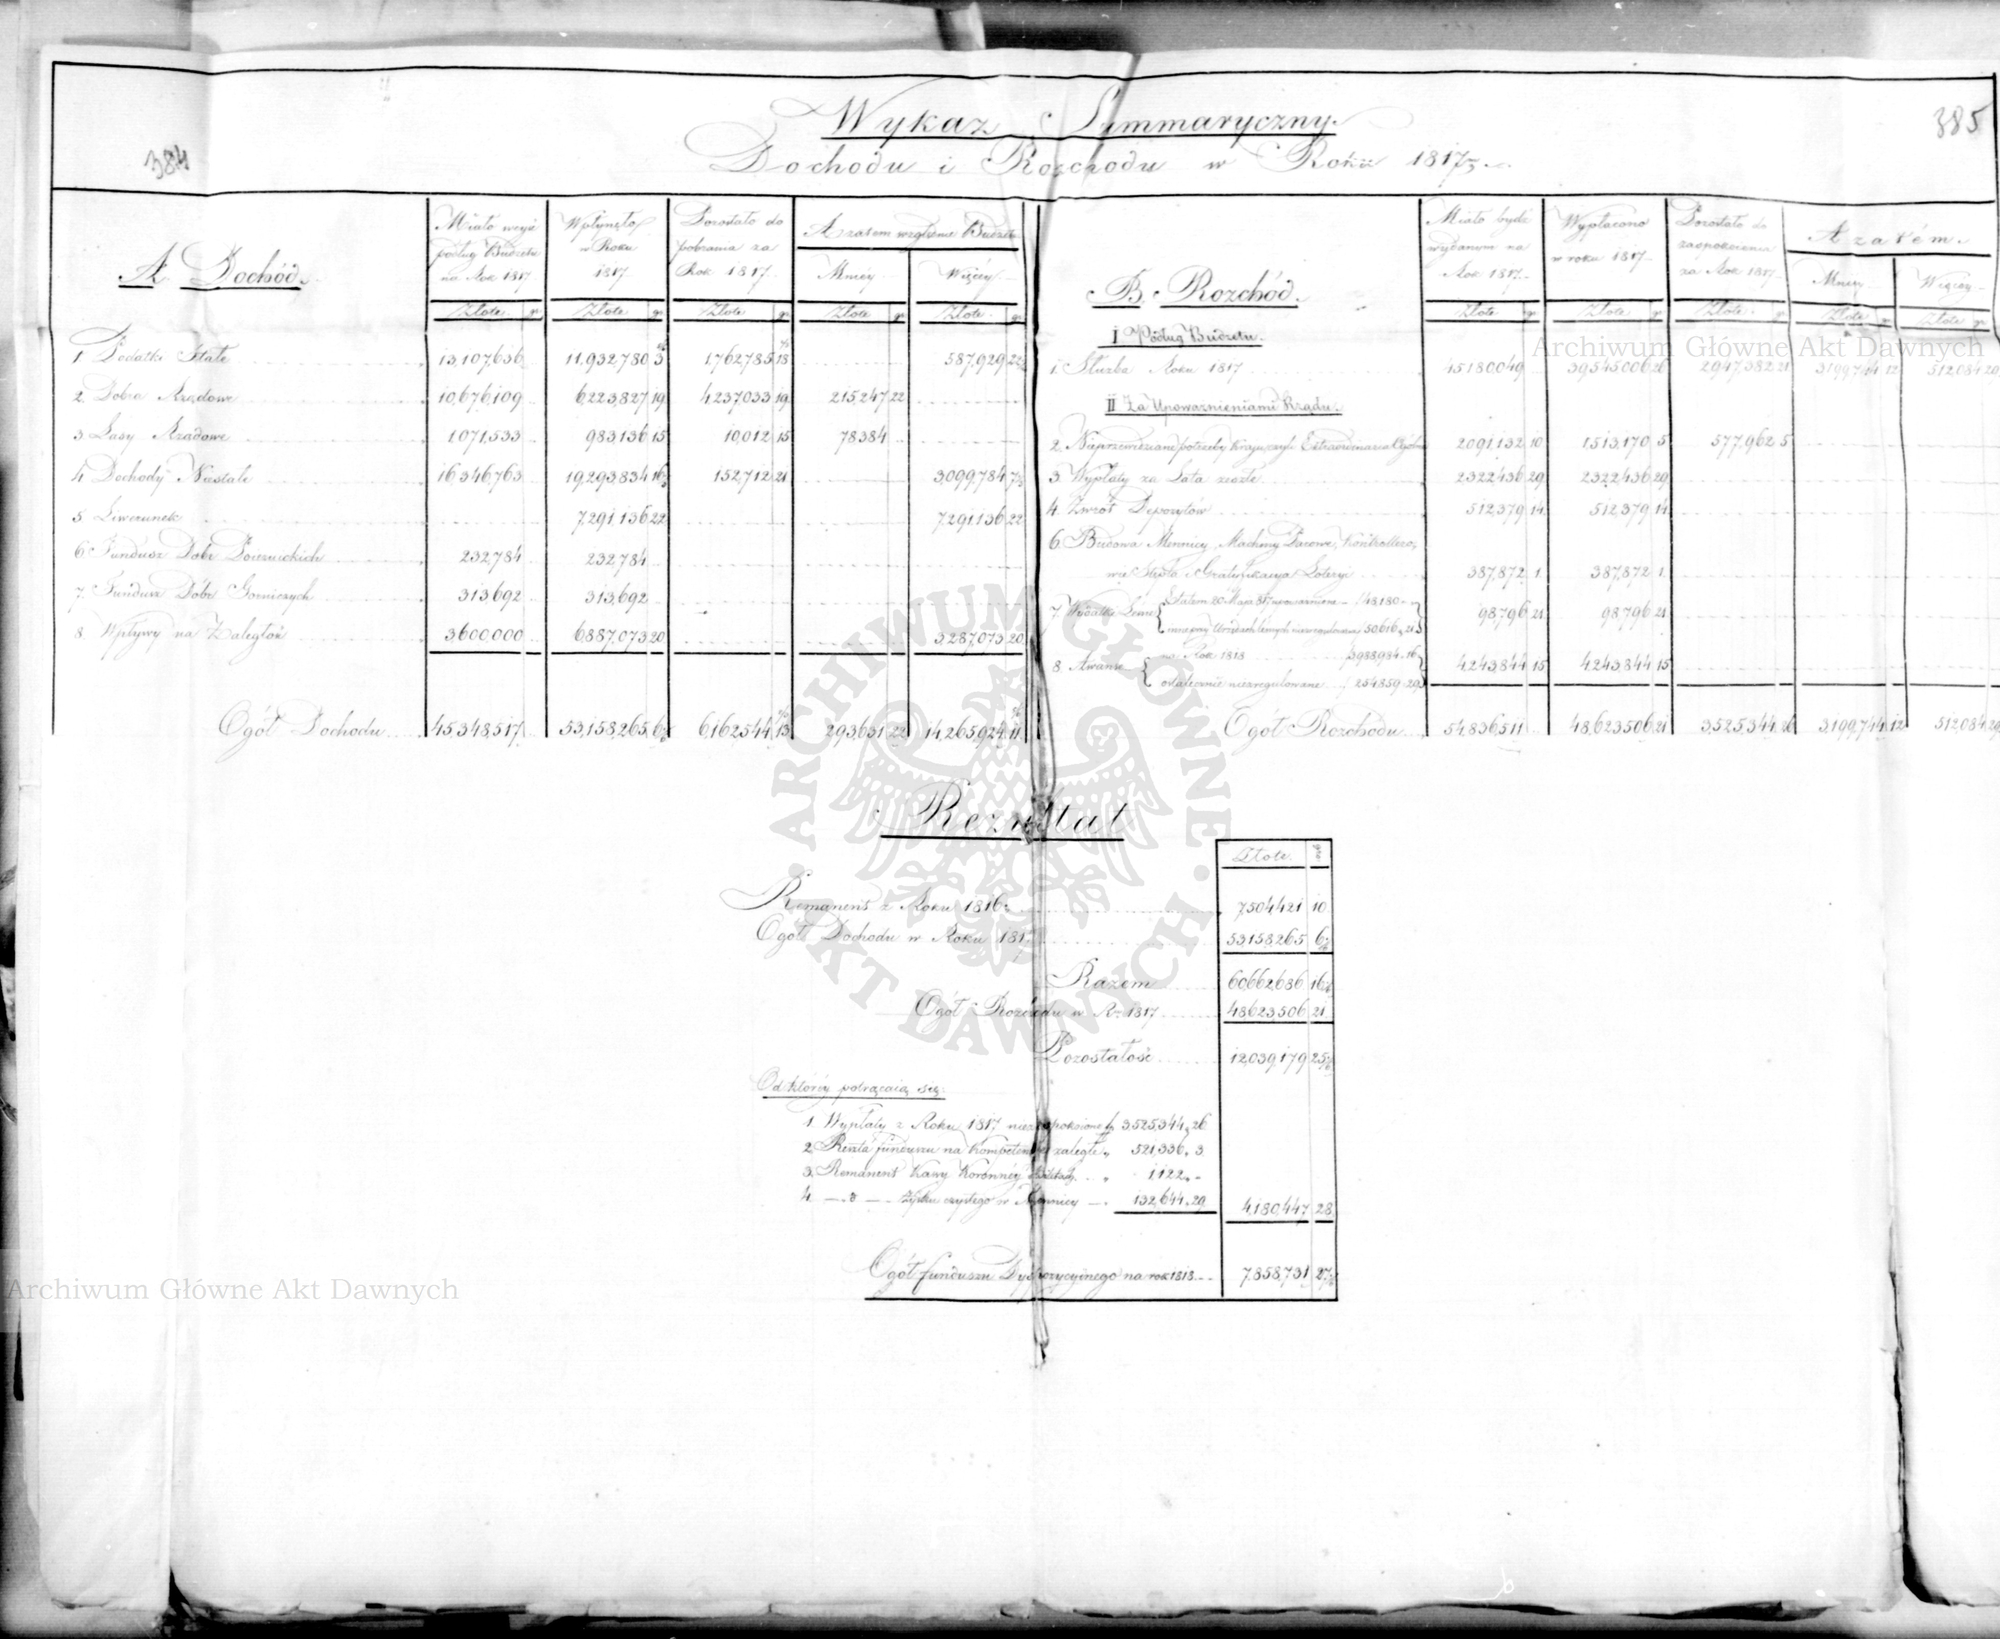 384
385
Wykaz Summaryczny.
Dochodu i Rozchodu w Roku 1817.
A. Dochód.
Miało wejść podług Budżetu na Rok 1817
Wpłynęło w Roku 1817
Pozostało do pobrania za Rok 1817.
A zatem względnie Budżetu
Mniéy
Więcéy
Złote gr Złote gr Złote gr Złote gr Złote gr
1. Podatki Stałe 13,107,636 11,932,780 3 1,762,785 18 587,929 22
2. Dobra Rządowe 10,676,109 6,223,827 19 4,237,033 19 215,247 22
3. Lasy Rządowe 1,071,533 983,136 15 10,012 15 78,384
4. Dochody Niestałe 16,346,763 19,293,834 16 152,712 21 3,099,784 7
5. Liwerunek 7,291,136 22 7,291,136 22
6. Fundusz Dóbr 232,784 232,784
7. Fundusz Dóbr Górniczych 313,692 313,692
8. Wpływy na Zaległoś 3,600,000 6,887,073 20 3,287,073 20
Ogół Dochodu 45,348,517 53,158,265 6 6,162,544 13 293,631 22 14,265,924 11
B. Rozchód.
Miało bydź wydanym na Rok 1817
Wypłacono w roku 1817
Pozostało do zaspokojenia za Rok 1817
A zatém
Mniéy
Więcéy
Złote gr Złote gr Złote gr Złote gr Złote gr
I Podług Budżetu.
1. Służba Roku 1817 45,180,049 39,545,006 26 2,947,382 21 3,199,744 12 512,084 29
II Za Upoważnieniami Rządu.
2. Nieprzewidziane potrzeby Kraju, czyli Extraordinaria 2,091,132 10 1,513,170 5 577,962 5
3. Wypłaty za Lata zeszłe 2,322,436 29 2,322,436 29
4. Zwrót Depozytów 512,379 14 512,379 14
6. Budowa Mennicy, Machiny Parowe, Kontrollero,
wie Stępla i Gratyfikacya Loteryi 387,872 1 387,872 1
7. Wydatki Leśne 20 Maja 817 48,180 98,796 21 98,796 21
50,616 21
8. Awanse na Rok 1818 3,988,984 16 4,243,844 15 4,243,844 15
ostatecznie nieuregulowane 254,859 29
Ogół Rozchodu 54,836,511 48,623,506 21 3,525,344 26 3,199,744 12 512,084 29
Rezultat
Złote gr
Remanent z Roku 1816. 7,504,421 10
Ogół Dochodu w Roku 1817 53,158,265 6
Razem 60,662,686 16
Ogół Rozchodu w Rku 1817 48,623,506 21
Pozostałość 12,039,179 25
Od któréy potrącaią się:
1. Wypłaty z Roku 1817 niezaspokoione 3,525,344 26
2. Reszta funduszu na Kompetencye zaległe 521,336 3
3. Remanent Kawy Koronnéy 1,122 -
4. — d° — Zysku czystego w Mennicy 132,644 29 4,180,447 28
Ogół funduszu Dyspozycyinego na rok 1818 7,858,731 27
Archiwum Główne Akt Dawnych
Archiwum Główne Akt Dawnych
ARCHIWUM GŁÓWNE AKT DAWNYCH